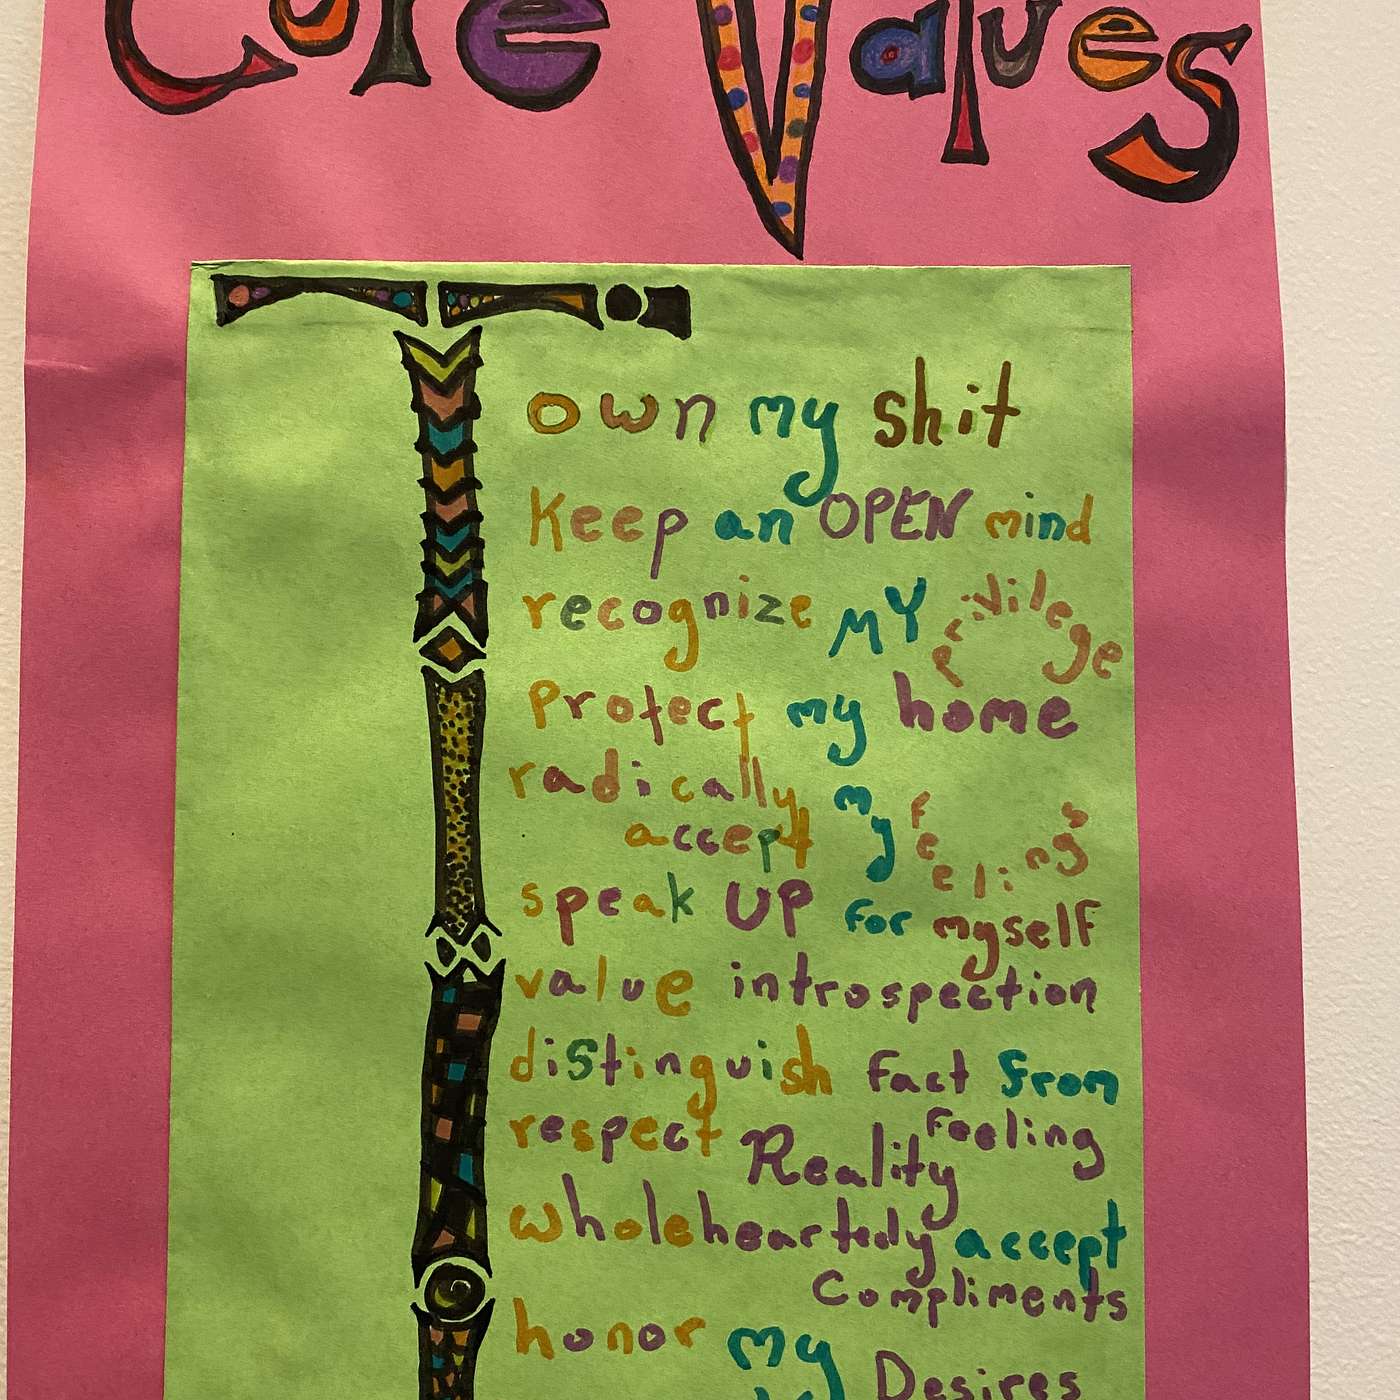 Core Values
I
own my shit
Keep an OPEN mind
recognize MY privilege
Protect my home
radically accept my feelings
speak UP for myself
value introspection
distinguish fact from feeling
respect Reality
wholeheartedly accept Compliments
honor my Desires